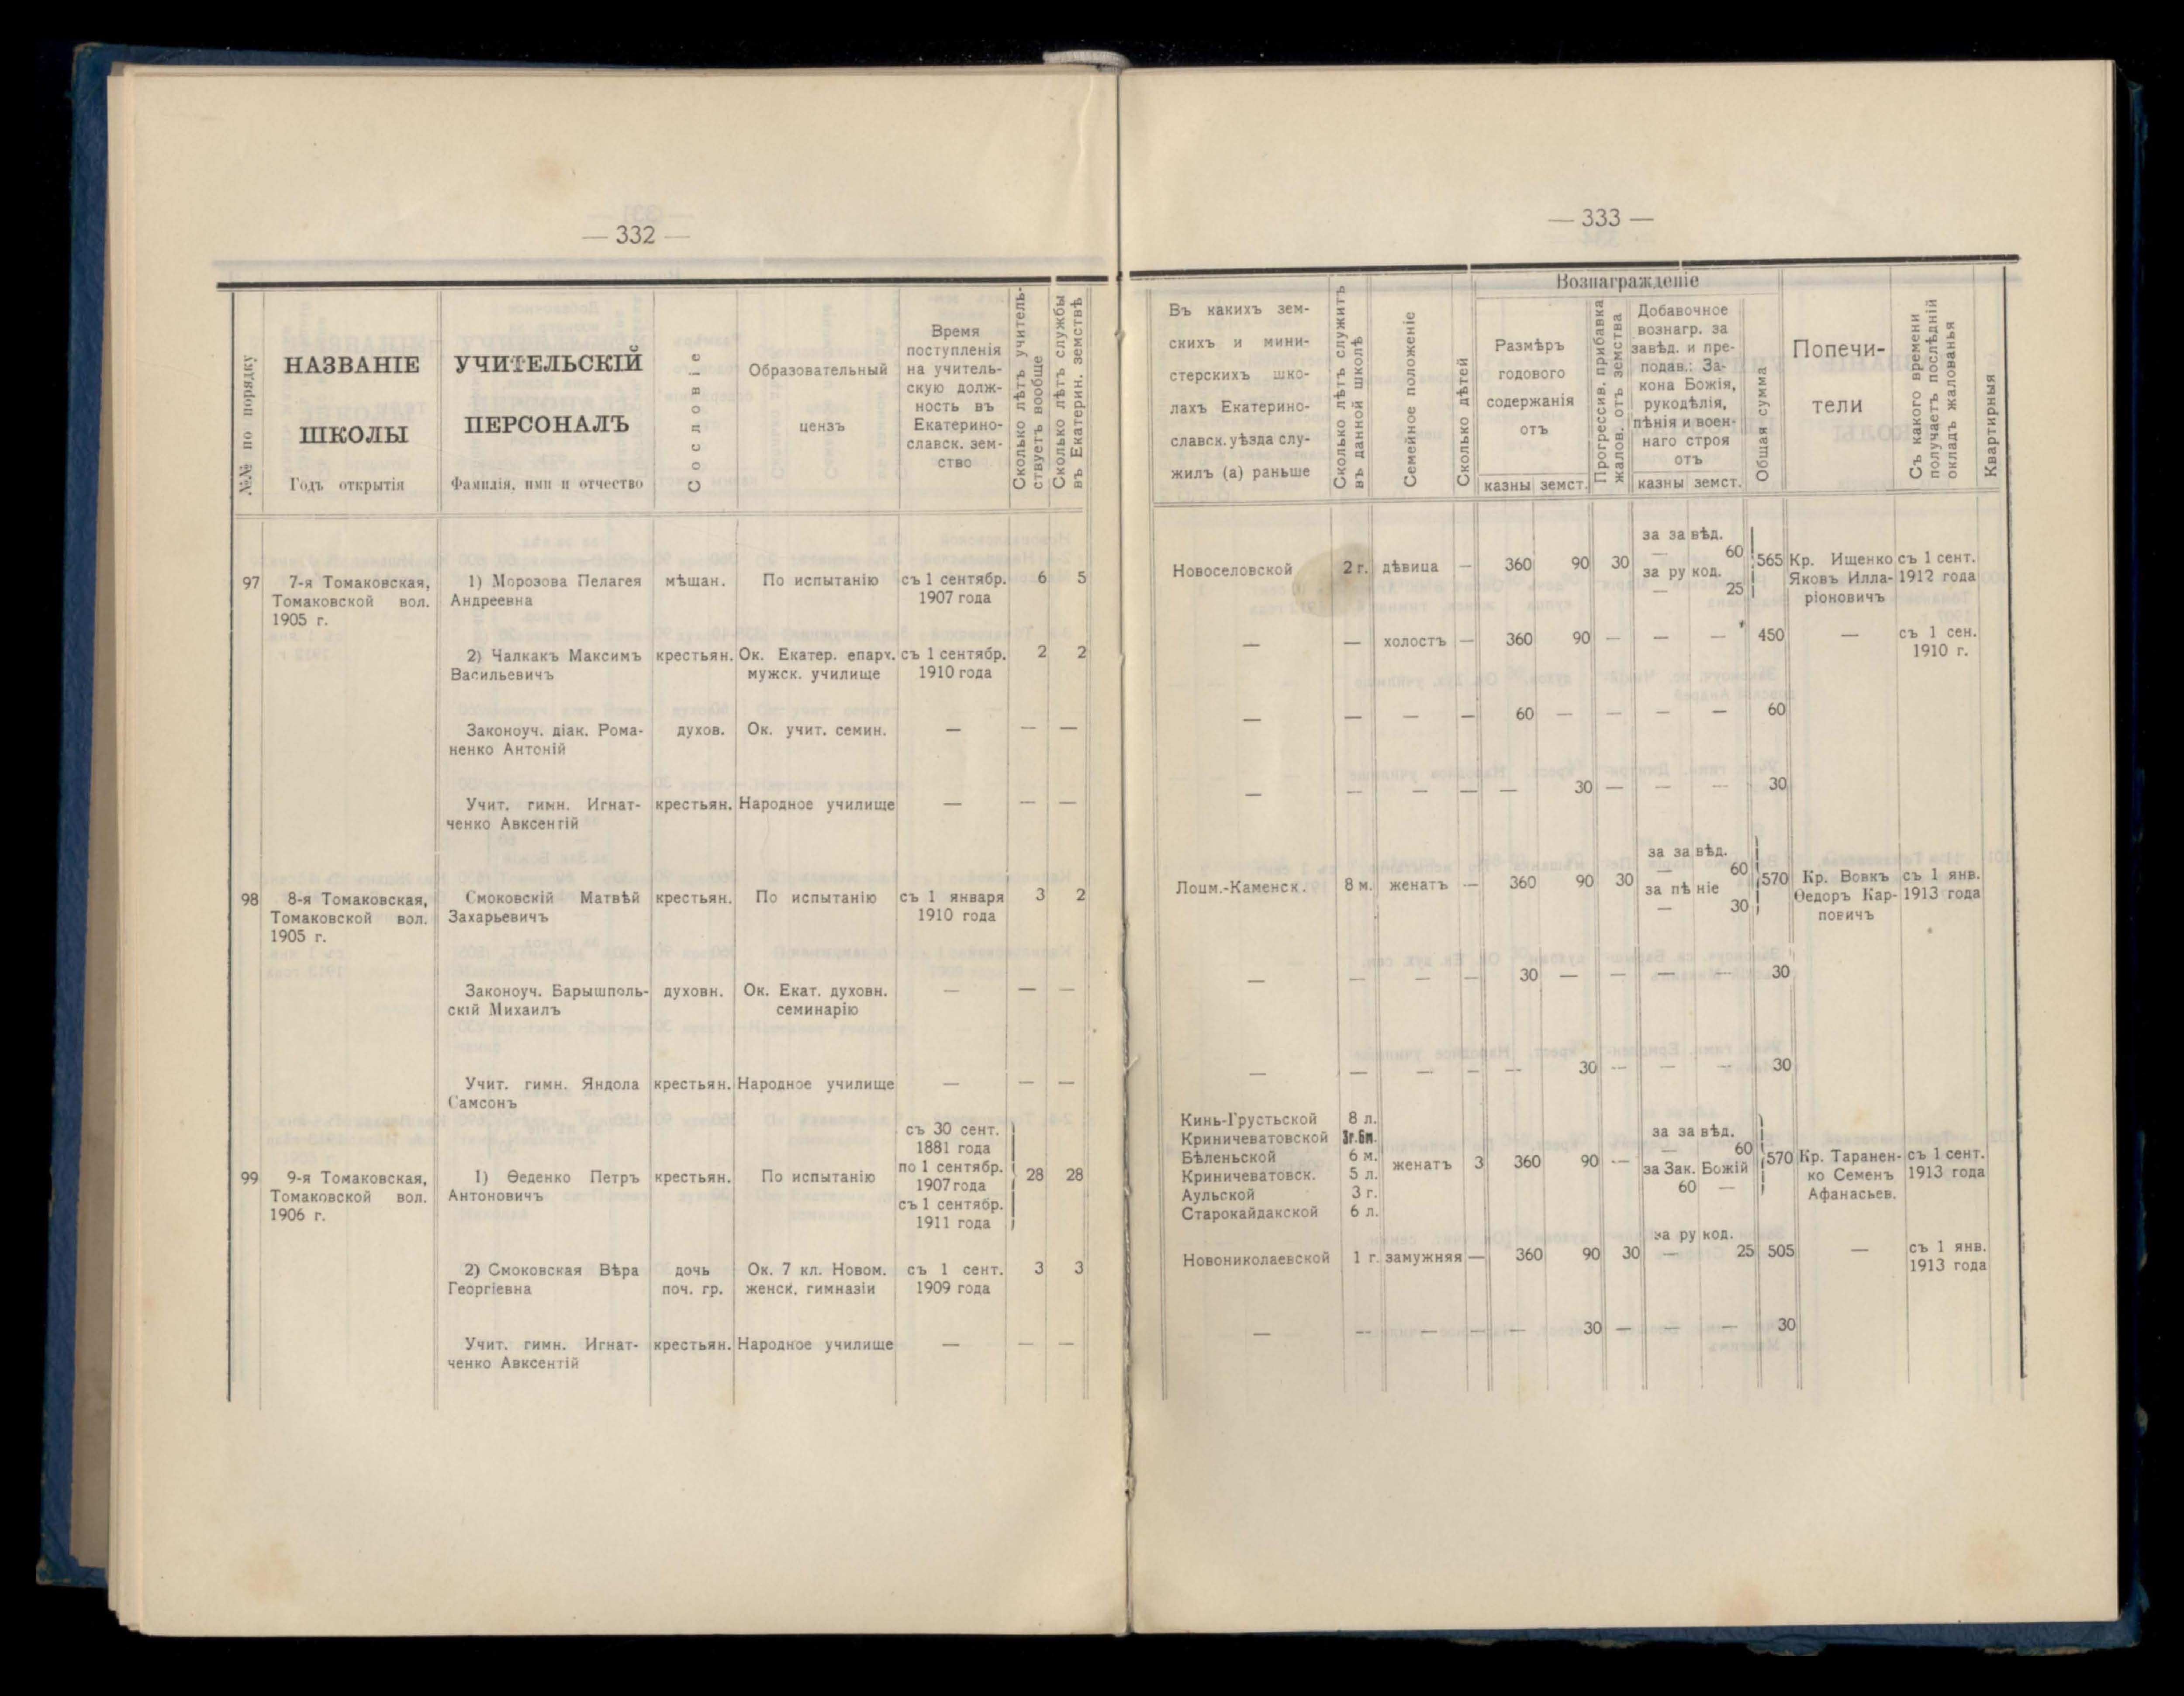 — 332 —
№№ по порядку
НАЗВАНІЕ
ШКОЛЫ
Годъ открытія
УЧИТЕЛЬСКІЙ
ПЕРСОНАЛЪ
Фамилія, имя и отчество
Сословіе
Образовательный
цензъ
Время
поступленія
на учитель-
скую долж-
ность въ
Екатерино-
славск. зем-
ство
Сколько лѣтъ учитель-
ствуетъ вообще
Сколько лѣтъ службы
въ Екатерин. земствѣ
97 7-я Томаковская, 1) Морозова Пелагея мѣщан. По испытанію съ 1 сентябр. 6 5
Томаковской вол. Андреевна 1907 года
1905 г.
2) Чалкакъ Максимъ крестьян. Ок. Екатер. епарх. съ 1 сентябр. 2 2
Васильевичъ мужск. училище 1910 года
Законоуч. діак. Рома- духов. Ок. учит. семин. — — —
ненко Антоній
Учит. гимн. Игнат- крестьян. Народное училище — — —
ченко Авксентій
98 8-я Томаковская, Смоковскій Матвѣй крестьян. По испытанію съ 1 января 3 2
Томаковской вол. Захарьевичъ 1910 года
1905 г.
Законоуч. Барышполь- духовн. Ок. Екат. духовн. — — —
скій Михаилъ семинарію
Учит. гимн. Яндола крестьян. Народное училище — — —
Самсонъ
съ 30 сент.
1881 года
по 1 сентябр.
99 9-я Томаковская, 1) Ѳеденко Петръ крестьян. По испытанію 1907 года 28 28
Томаковской вол. Антоновичъ съ 1 сентябр.
1906 г. 1911 года
2) Смоковская Вѣра дочь Ок. 7 кл. Новом. съ 1 сент. 3 3
Георгіевна поч. гр. женск. гимназіи 1909 года
Учит. гимн. Игнат- крестьян. Народное училище — — —
ченко Авксентій
— 333 —
Въ какихъ зем-
скихъ и мини-
стерскихъ шко-
лахъ Екатерино-
славск. уѣзда слу-
жилъ (а) раньше
Сколько лѣтъ служитъ
въ данной школѣ
Семейное положеніе
Сколько дѣтей
Вознагражденіе
Размѣръ
годового
содержанія
отъ
казны земст.
Прогрессив. прибавка
жалов. отъ земства
Добавочное
вознагр. за
завѣд. и пре-
подав.: За-
кона Божія,
рукодѣлія,
пѣнія и воен-
наго строя
отъ
казны земст.
Общая сумма
Попечи-
тели
Съ какого времени
получаетъ послѣдній
окладъ жалованья
Квартирныя
за завѣд.
— 60
Новоселовской 2 г. дѣвица — 360 90 30 за рукод. 565 Кр. Ищенко съ 1 сент.
— 25 Яковъ Илла- 1912 года
ріоновичъ
— — холостъ — 360 90 — — — 450 — съ 1 сен.
1910 г.
— — — — 60 — — — — 60
— — — — — 30 — — — 30
за завѣд.
— 60
Лоцм.-Каменск. 8 м. женатъ — 360 90 30 за пѣніе 570 Кр. Вовкъ съ 1 янв.
— 30 Ѳедоръ Кар- 1913 года
повичъ
— — — — 30 — — — — 30
— — — — — 30 — — — 30
Кинь-Грустьской 8 л.
Криничеватовской 3г.6м. за завѣд.
Бѣленьской 6 м. — 60
женатъ 3 360 90 — 570 Кр. Таранен- съ 1 сент.
Криничеватовск. 5 л. за Зак. Божій ко Семенъ 1913 года
Аульской 3 г. 60 — Афанасьев.
Старокайдакской 6 л.
за рукод.
Новониколаевской 1 г. замужняя — 360 90 30 — 25 505 — съ 1 янв.
1913 года
— — — — — 30 — — — 30